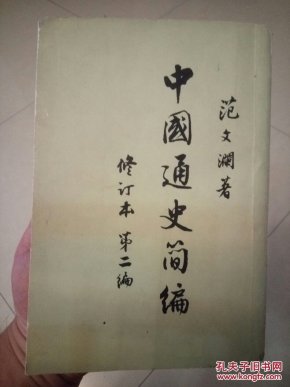 范文瀾著
中國通史简编
修订本 第二编
孔夫子旧书网